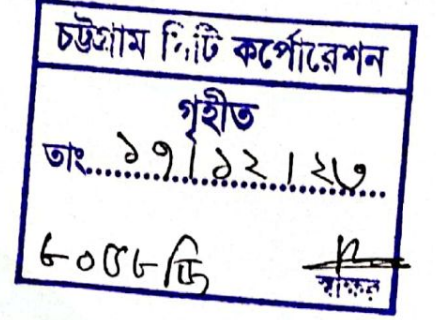 চট্টগ্রাম সিটি কর্পোরেশন
গৃহীত
তাং..... ১৭। ১২ । ২৩
স্বাক্ষর